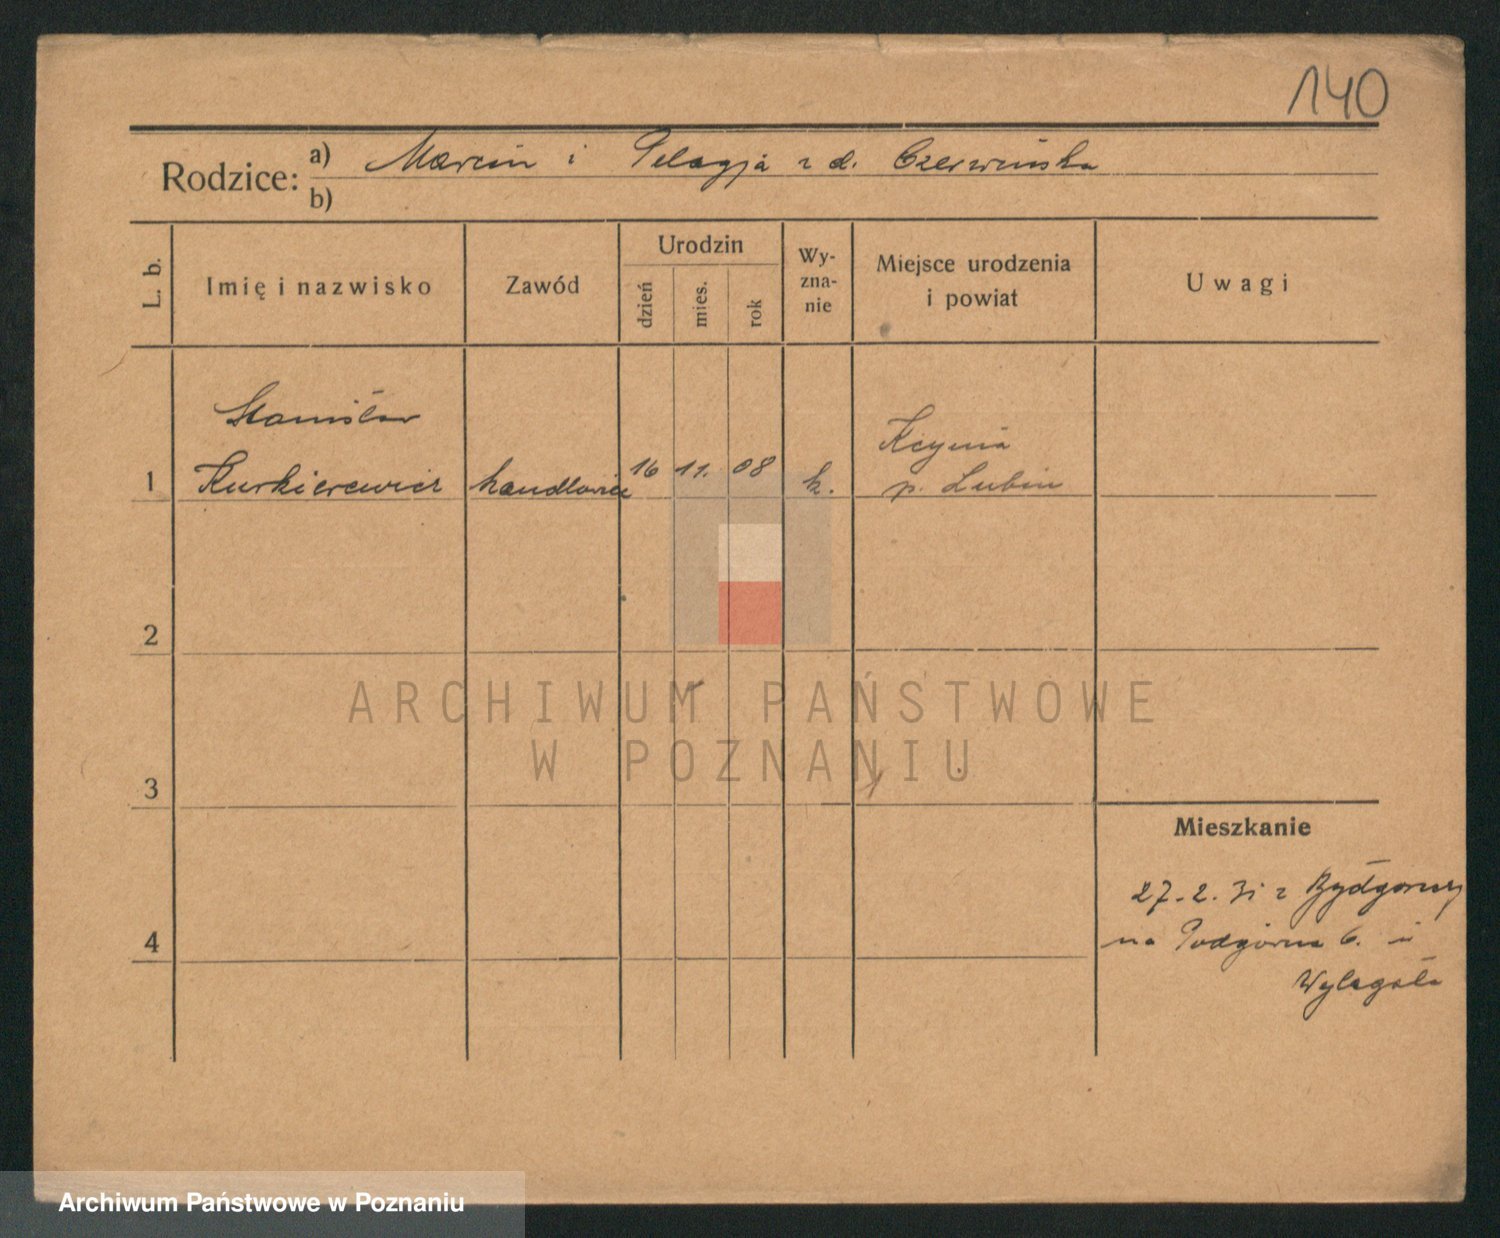 140
Rodzice: a) Marcin i Pelagja z d. Czerwińska
b)
L. b.
Imię i nazwisko
Zawód
Urodzin
dzień
mies.
rok
Wy-
zna-
nie
Miejsce urodzenia
i powiat
Uwagi
Stanisław
1 Kurkierewicz handlowiec 16 11. 08 k. Kcynia
p. Lubin
2
3
4
Mieszkanie
27.2.31 z Bydgoszczy
na Podgórna 6. u
ARCHIWUM PAŃSTWOWE
W POZNANIU
Archiwum Państwowe w Poznaniu